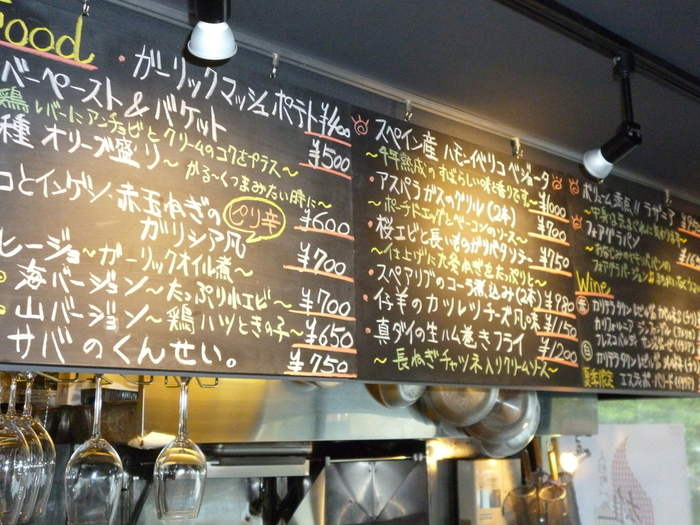 Food
・ガーリックマッシュポテト ¥400
バーペースト&バケット ¥500
鶏レバーにアンチョビとクリームのコクをプラス〜
種 オリーブ盛り〜かる〜くつまみたい時に〜 ¥600
コとインゲン、赤玉ねぎの
ガリシア風 ¥700
ピリ辛
ヒージョ〜ガーリックオイル煮〜
海バージョン〜たっぷり小エビ〜 ¥700
山バージョン〜鶏ハツときの子〜 ¥650
サバのくんせい。 ¥750
スペイン産 ハモンイベリコ ベジョータ
〜4年熟成のすばらしい味と香りです〜 ¥1000
・アスパラガスのグリル(2本) ¥900
〜ポーチドエッグとベーコンのソース〜
・桜エビと長いものガリバタソテー ¥750
〜仕上げに九条ねぎをたっぷりと〜
・スペアリブのコーラ煮込み(2本) ¥980
・仔羊のカツレツチーズ風味 ¥1150
・真ダイの生ハム巻きフライ ¥1200
〜長ねぎチャツネ入りクリームソース〜
ボリューム満点!! ラザーニア
フォアグラパン
Wine
夏季限定